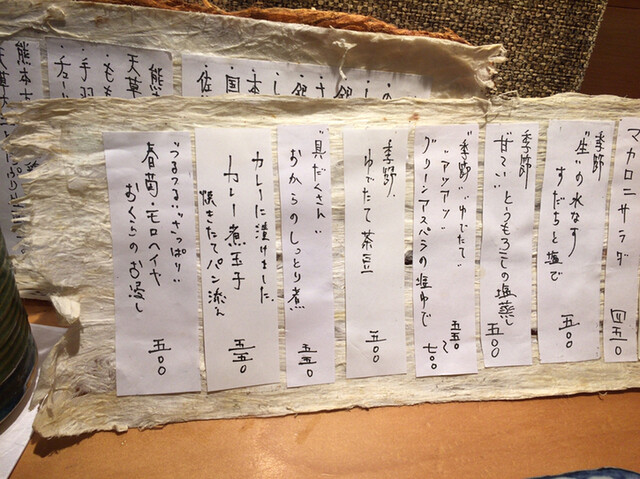 マカロニサラダ
四五〇
季節
"生"の水なす
すだちと塩で
五〇〇
季節
甘〜い とうもろこしの塩蒸し
五〇〇
"季節" "ゆでたて"
"アツアツ"
グリーンアスパラの塩ゆで
五五〇〜
七〇〇
季節
ゆでたて茶豆
五〇〇
"具だくさん"
おからのしっとり煮
五五〇
カレーに漬けました
カレー煮玉子
焼きたてパン添え
五五〇
"つるつる" "さっぱり"
春菊・モロヘイヤ
おくらのお浸し
五〇〇
・銀
・十
・銀
・し
・本
・国
・佐
熊
天草
・もも
・手羽
・チュー
熊本
天草大